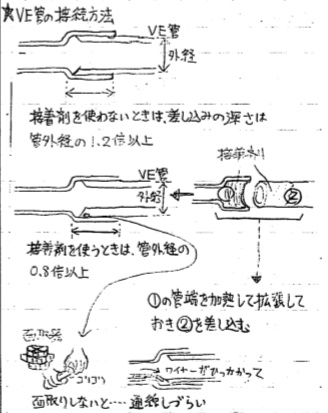 ★VE管の接続方法
VE管
外径
接着剤を使わないときは、差し込みの深さは
管外径の1.2倍以上
接着剤
VE管
外径
① ②
接着剤を使うときは、管外径の
0.8倍以上
①の管端を加熱して拡張して
おき②を差し込む
面取器
ゴリゴリ
ワイヤーがひっかかって
面取りしないと‥‥通線しづらい